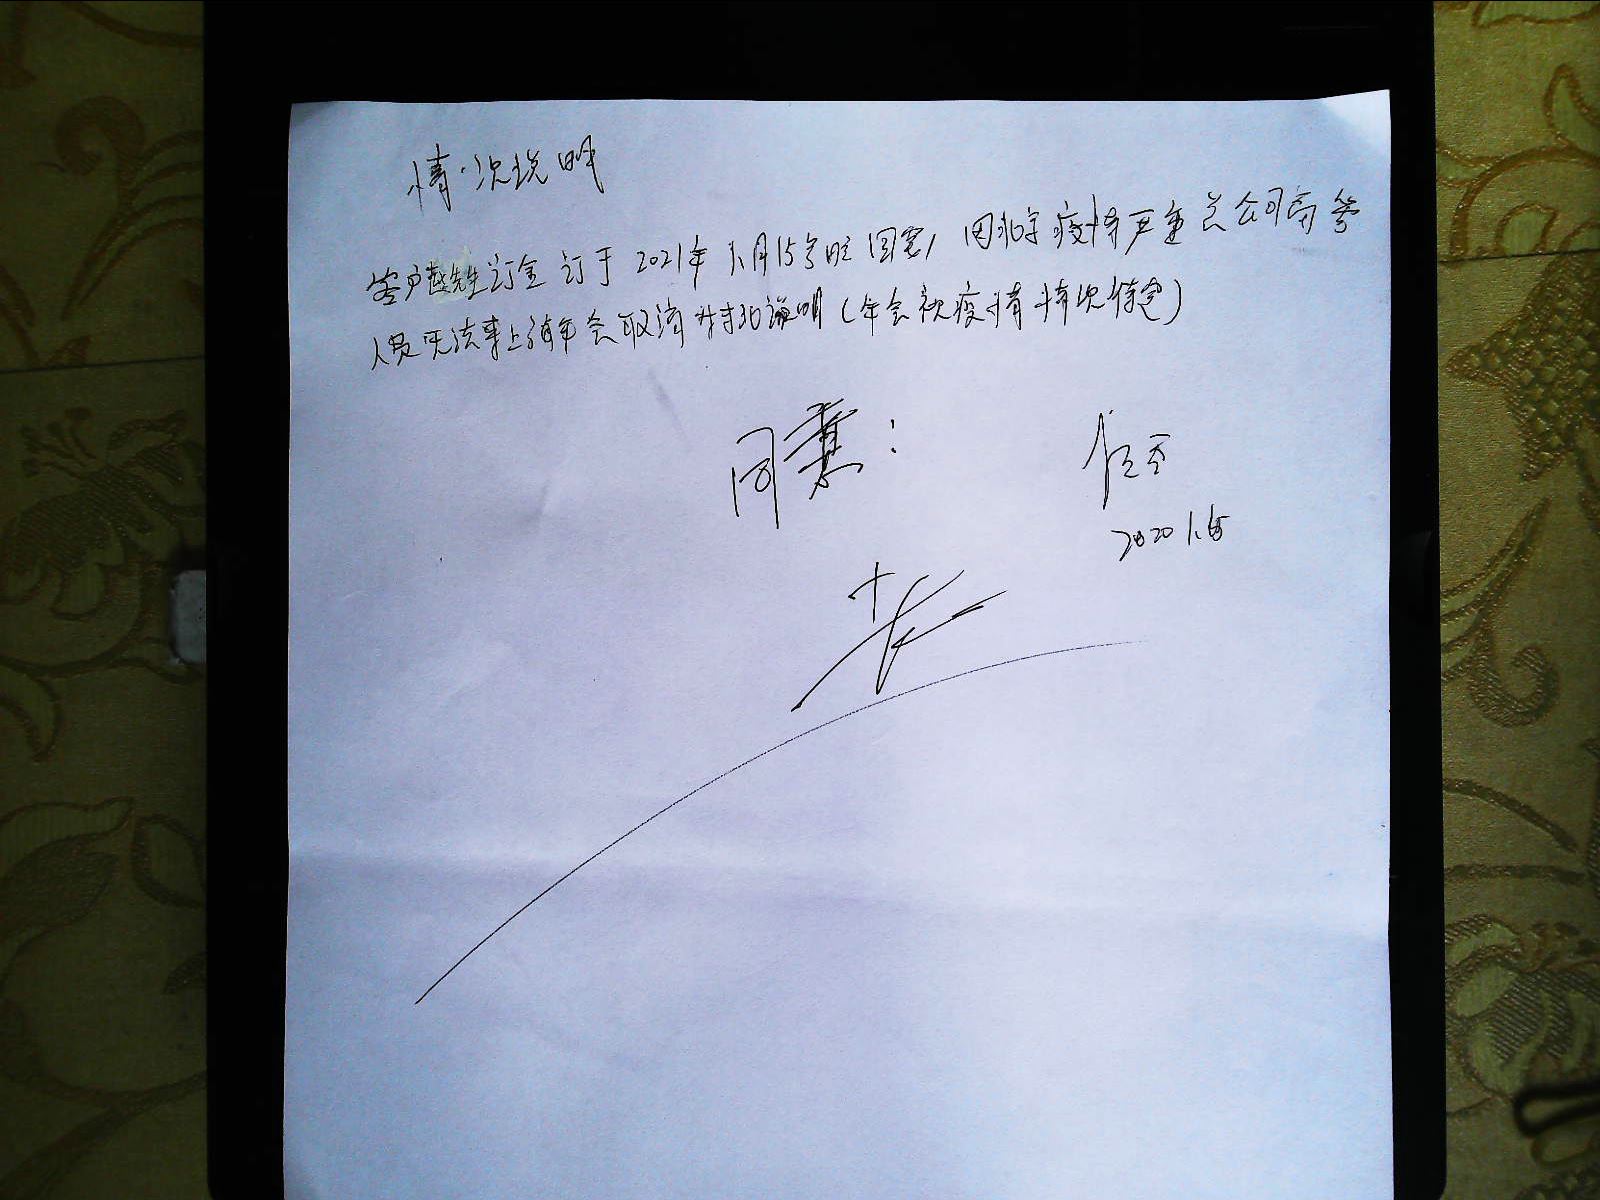 情况说明
客户赵先生订金订于2021年1月15号晚团宴,因北京疫情严重总公司高管
人员无法来上海年会取消 特此说明(年会视疫情情况待定)
同意:
2020 1.15